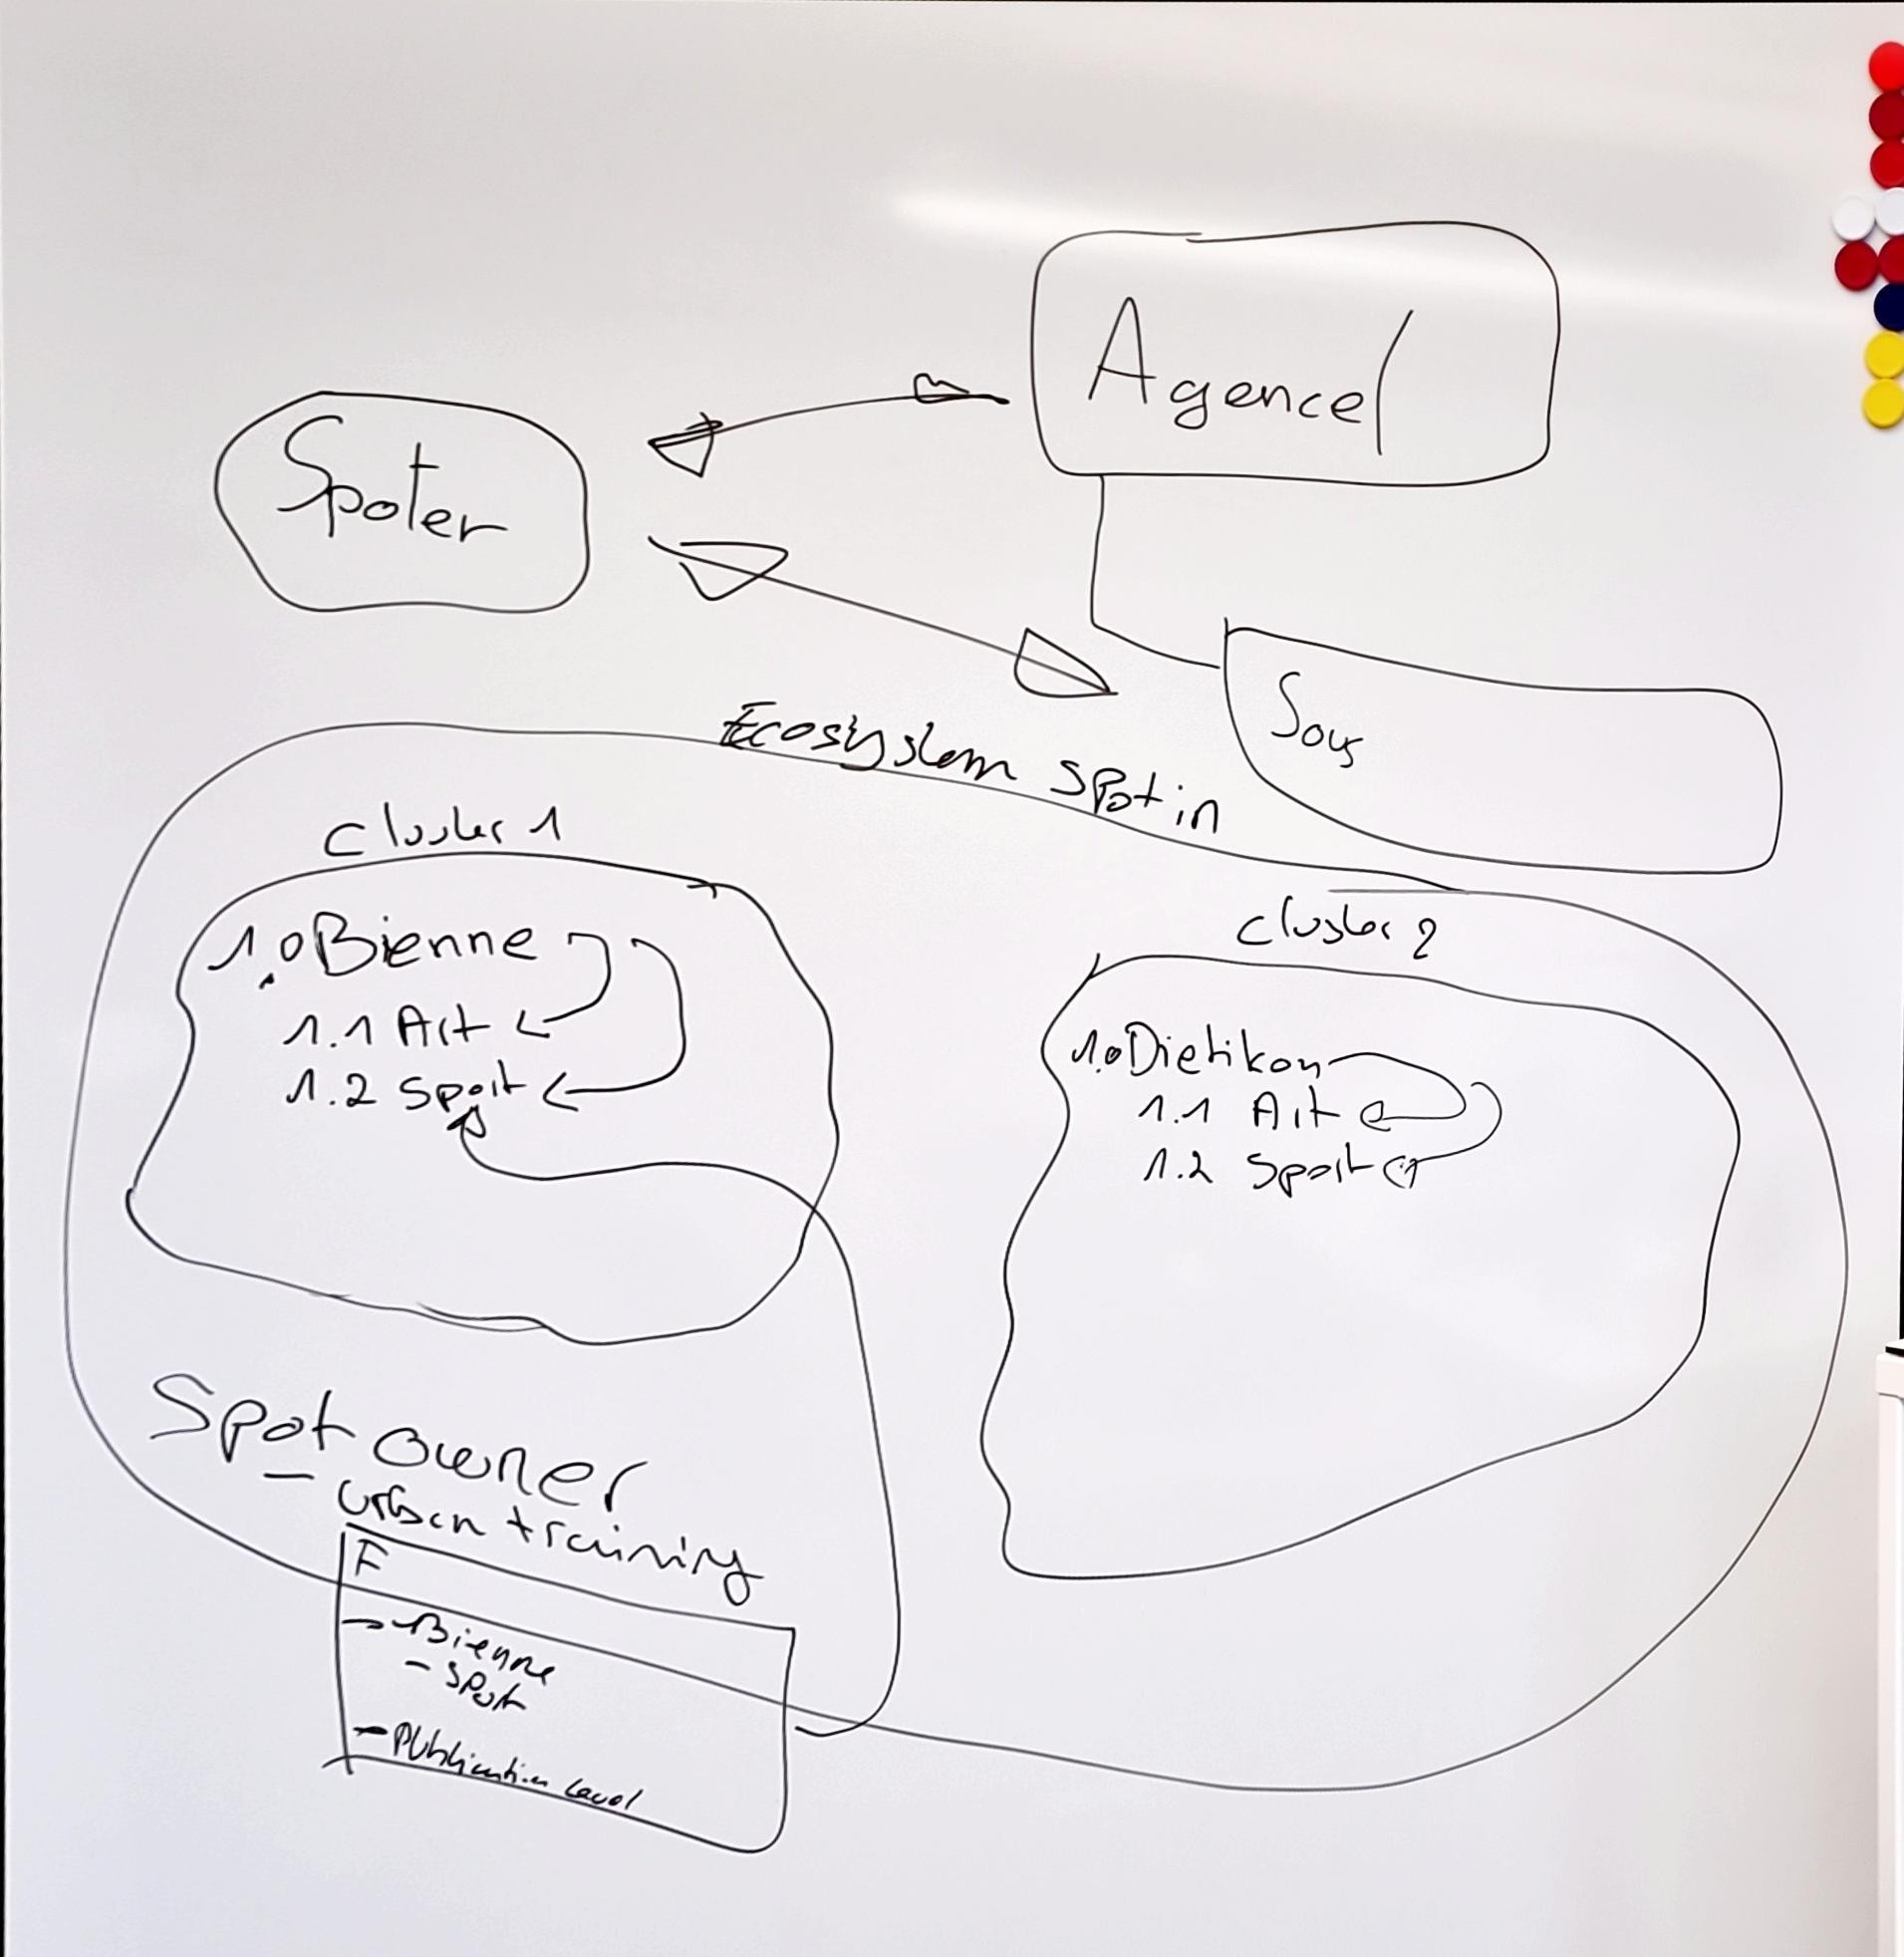 Agency
Spoter
Sous
Ecosystem Spotin
Cluster 1
1.0 Bienne
1.1 Art
1.2 Sport
Cluster 2
1.0 Dietikon
1.1 Art
1.2 Sport
Spot owner
- Urban training
F
- Bienne
- Sport
- Publication Level